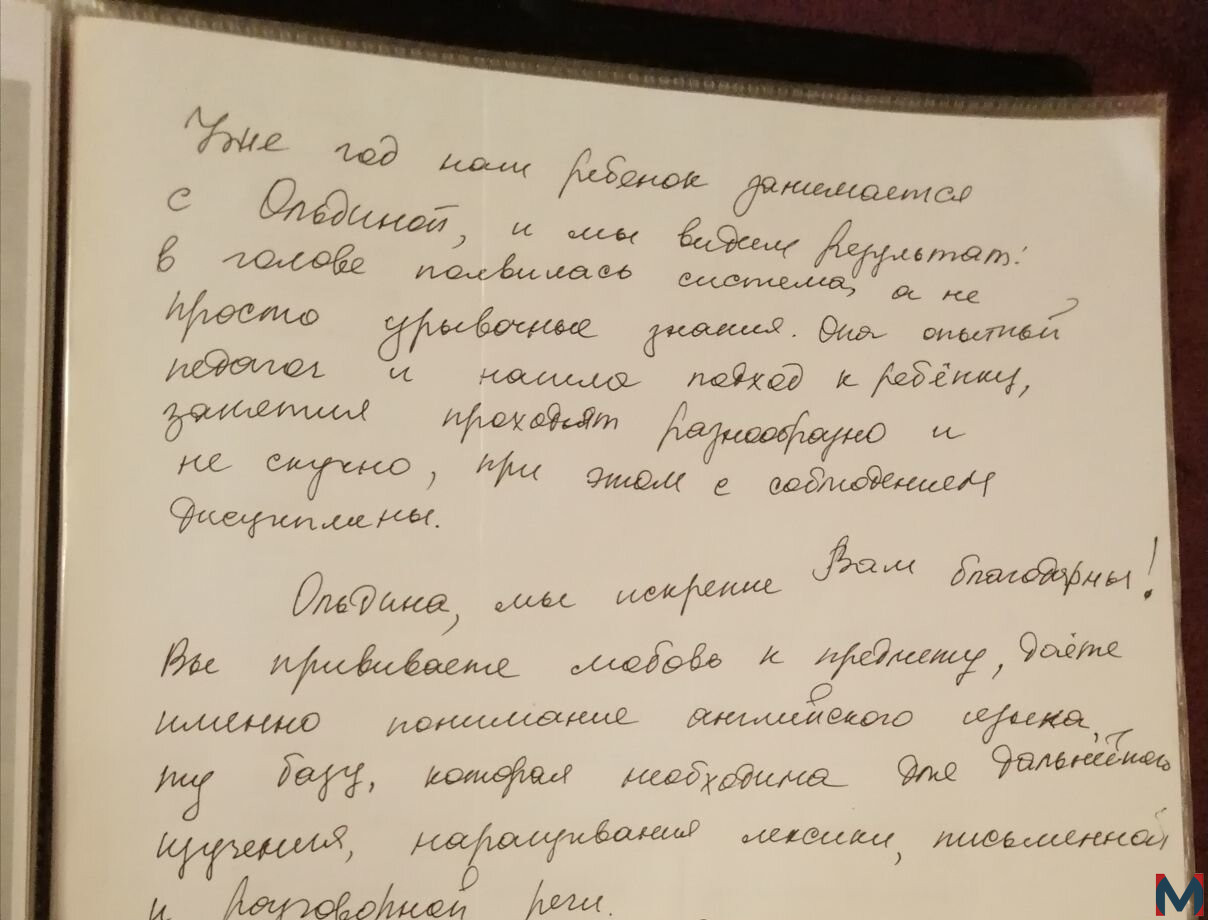 Уже год наш ребенок занимается
с Ольдиной, и мы видим результат:
в голове появилась система, а не
просто урывочные знания. Она опытный
педагог и нашла подход к ребёнку,
занятия проходят разнообразно и
не скучно, при этом с соблюдением
дисциплины.
Ольдина, мы искренне Вам благодарны!
Вы прививаете любовь к предмету, даёте
именно понимание английского языка,
ту базу, которая необходима для дальнейшего
изучения, наращивания лексики, письменной
и разговорной речи.
M